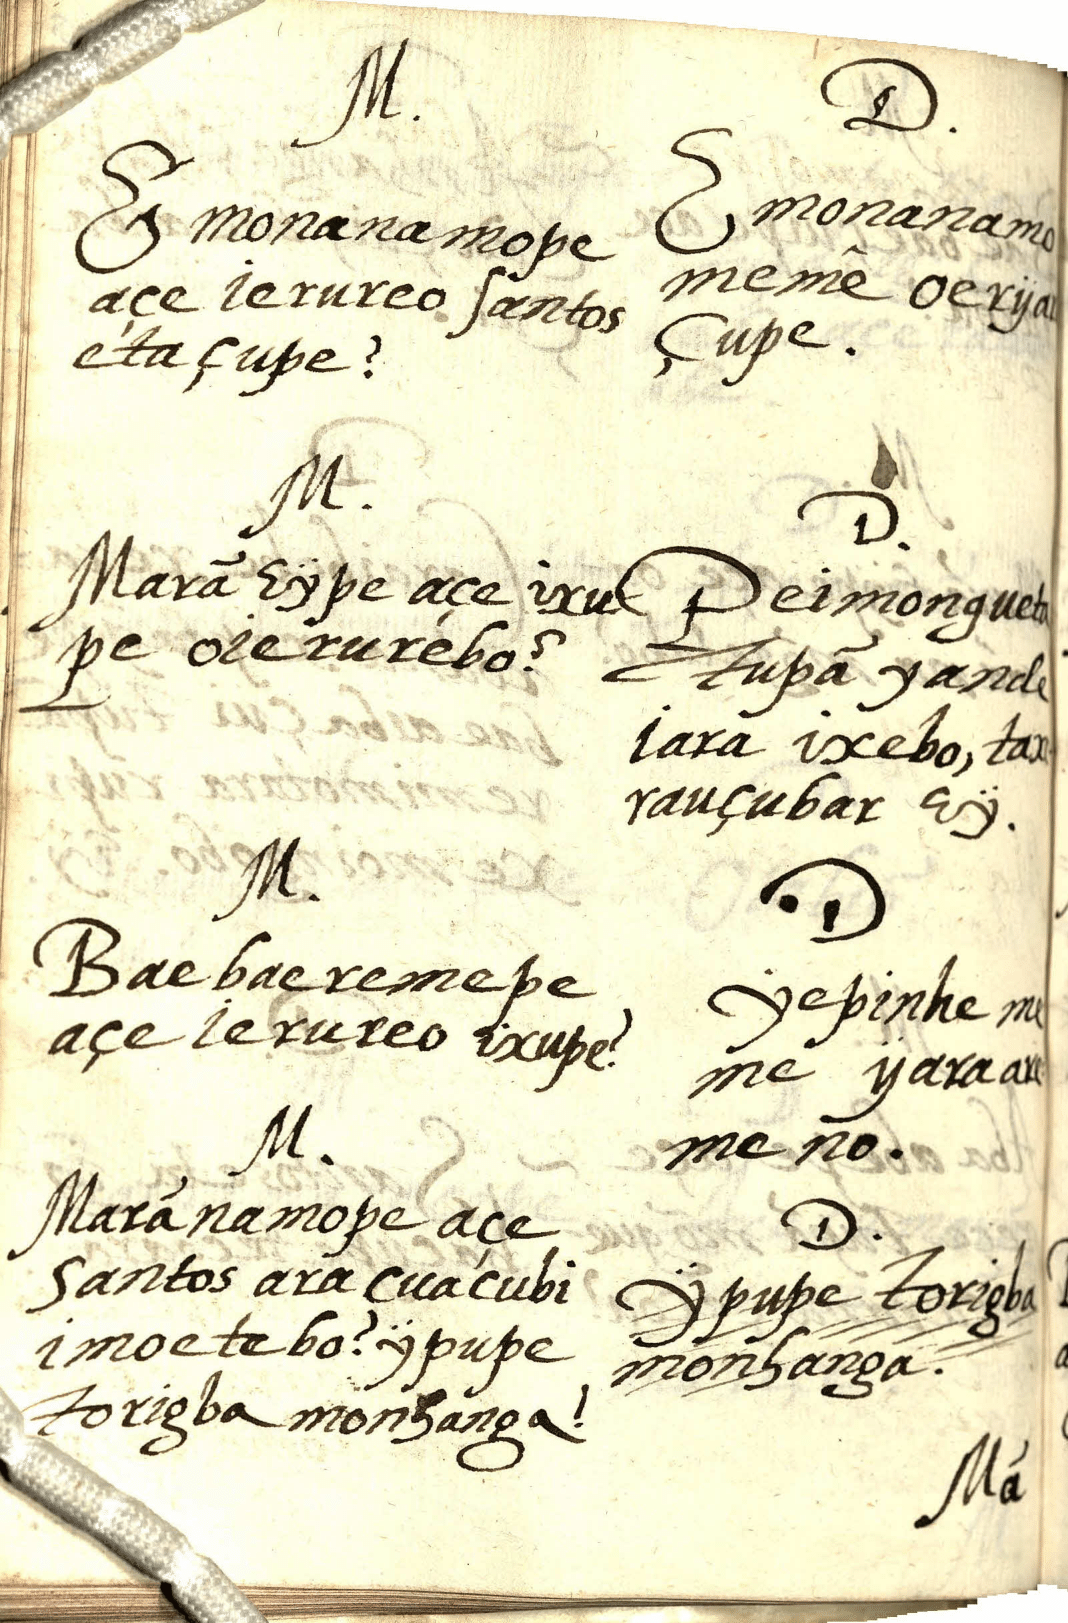 M.
Emonanamope
açe ierureo Santos
eta çupe?
D.
Emonanamo
memê oerijar
çupe.
M.
Marã eÿpe açe ixu
pe oierurébo?
D.
Peimongueta
tupã yande
iara ixebo, tax
rauçubar eÿ.
M.
Baebaeremepe
açe ierureo ixupe?
D
yepinhe me
me ÿaraare
me no.
M.
Marã namope açe
Santos ara çuaçubi
imoetebo? ÿpupe
torigba monhanga?
D.
ÿpupe torigba
monhanga.
Má